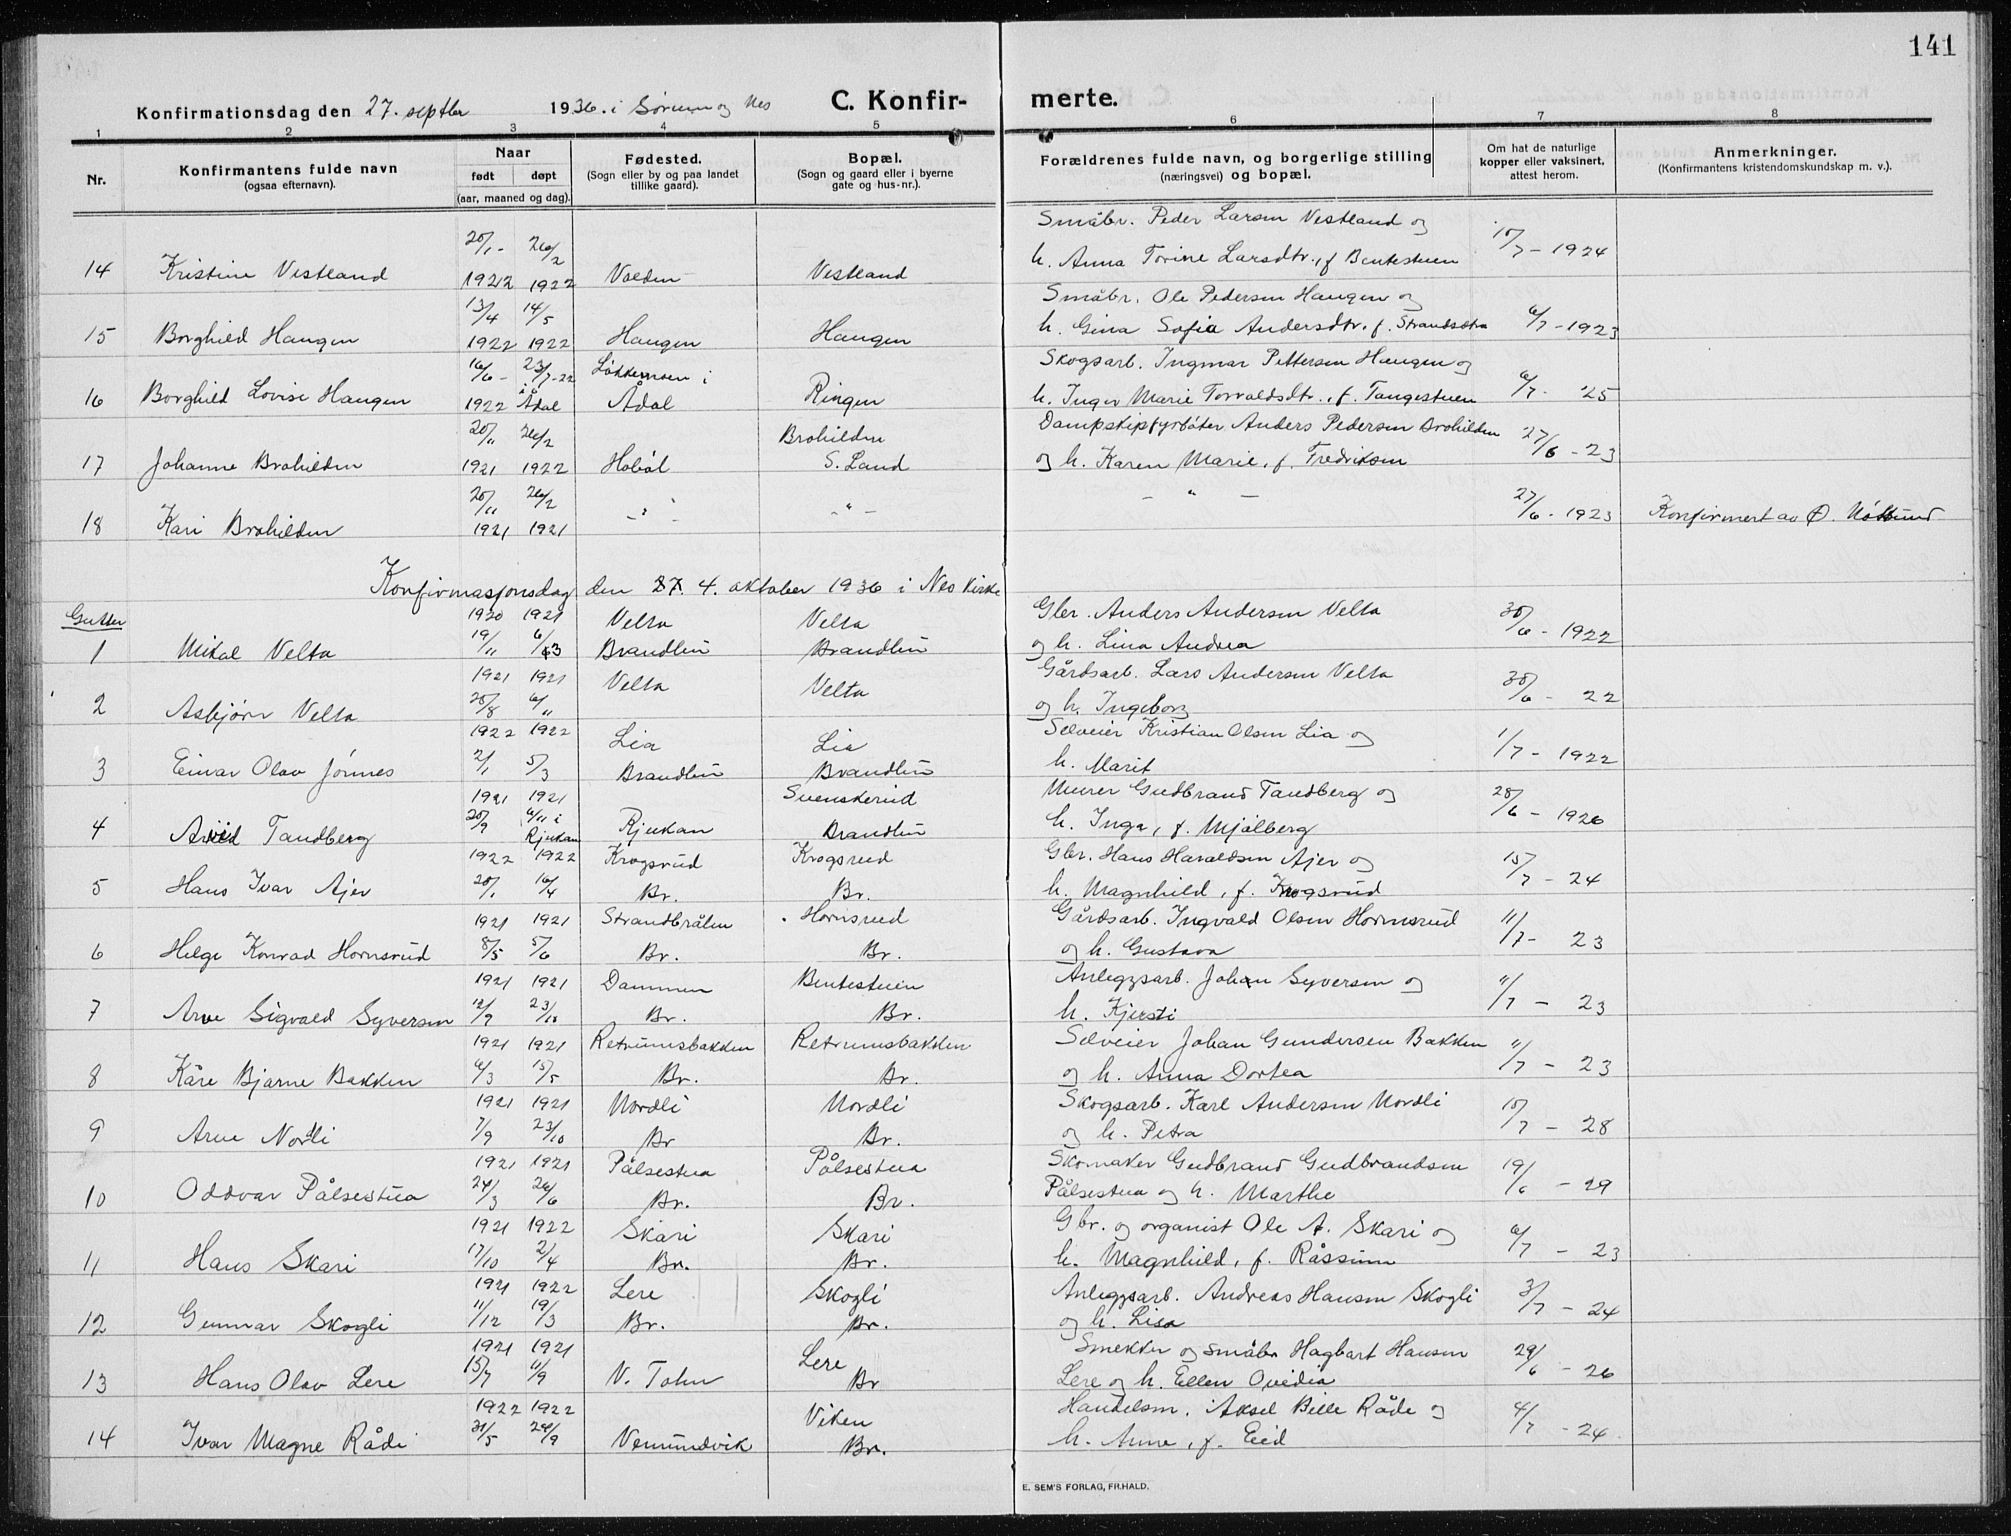 141
Konfirmationsdag den 27. septbr 1936. i Sørum og Nes C. Konfir- merte.
1 2 3 4 5 6 7 8
Nr. Konfirmantens fulde navn (ogsaa efternavn). Naar født døpt (aar, maaned og dag). Fødested. (Sogn eller by og paa landet tillike gaard). Bopæl. (Sogn og gaard eller i byerne gate og hus-nr.). Forældrenes fulde navn, og borgerlige stilling (næringsvei) og bopæl. Om hat de naturlige kopper eller vaksinert, attest herom. Anmerkninger. (Konfirmantens kristendomskundskap m. v.).
14 Kristine Vestland 20/1 - 1922 26/2 1922 Volden Vestland Småbr. Peder Larsen Vestland og h. Anna Torine Larsdtr., f. Bentestuen 10/7 - 1924
15 Borghild Haugen 13/4 1922 14/5 1922 Haugen Haugen Småbr. Ole Pedersen Haugen og h. Gina Sofia Andersdtr. f. Strandsdtra 6/7 - 1923
16 Borghild Lovise Haugen 16/6 - 1922 23/7-22 i Ådal Løkkemoen i Ådal Ringen Skogsarb. Ingmar Pettersen Haugen og h. Inger Marie Torvaldsdtr., f. Tangestuen 6/7 - 25
17 Johanne Brohilden 20/11 1921 26/2 1922 Hobøl Brohilden S. Land Dampskipsfyrbøter Anders Pedersen Brohilden og h. Karen Marie, f. Fredriksen 27/6 - 23
18 Kari Brohilden 20/11 1921 26/2 1921 - " - - " - - " - 27/6 - 1923 Konfirmert av O.
Konfirmasjonsdag den 27. 4. oktober 1936 i Nes kirke
Gutter
1 Mikal Velta 1920 19/11 1921 6/3 Velta Brandbu Velta Brandbu Gbr. Anders Andersen Velta og h. Lina Andrea 30/6 - 1922
2 Asbjørn Velta 1921 28/8 1921 6/11 Velta Velta Gårdsarb. Lars Andersen Velta og h. Ingeborg 30/6 - 22
3 Einar Olav Jónnes 1922 2/1 1922 5/3 Lia Brandbu Lia Brandbu Selveier Kristian Olsen Lia og h. Marit 1/7 - 1922
4 Arvid Tandberg 1921 20/9 1921 6/11 i Rjukan Rjukan Svenskerud Brandbu Murer Gudbrand Tandberg og h. Inga, f. Mjålberg 28/6 - 1926
5 Hans Ivar Ajer 1922 20/1 1922 16/4 Krogsrud Br. Krogsrud Br. Gbr. Hans Haraldsen Ajer og h. Magnhild, f. Krogsrud 15/7 - 24
6 Helge Konrad Hornsrud 1921 8/5 1921 5/6 Strandbråten Br. Hornsrud Br. Gårdsarb. Ingvald Olsen Hornsrud og h. Gustava 11/7 - 23
7 Arve Sigvald Syversen 1921 12/9 1921 23/10 Dammen Br. Bentestuen Br. Anleggsarb. Johan Syversen og h. Kjersti 11/7 - 23
8 Kåre Bjarne Bakken 1921 6/3 1921 15/5 Retrumsbakken Br. Retrumsbakken Br. Selveier Johan Gundersen Bakken og h. Anna Dortea 11/7 - 23
9 Arne Nordli 1921 7/9 1921 23/10 Nordli Br Nordli Br. Skogsarb. Karl Andersen Nordli og h. Petra 10/7 - 28
10 Oddvar Pålsestua 1921 24/3 1921 26/6 Pålsestua Br. Pålsestua Br. Skomaker Gudbrand Gudbrandsen Pålsestua og h. Marthe 19/6 - 29
11 Hans Skari 1921 17/10 1922 2/4 Skari Br. Skari Br. Gbr. og organist Ole A. Skari og h. Magnhild, f. Råssum 6/7 - 23
12 Gunnar Skogli 1921 11/12 1922 19/3 Lere Br. Skogli Br. Anleggsarb. Andreas Hansen Skogli og h. Lisa 3/7 - 24
13 Hans Olav Lere 1921 15/7 1921 11/9 V. Toten Lere Br Snekker og småbr Hagbart Hansen Lere og h. Ellen Ovidia 29/6 - 26
14 Ivar Magne Råde 1922 31/5 1922 24/9 Vemundvik Viken Br. Handelsm. Aksel Bille Råde og h. Anne, f. Eid 4/7 - 24
E. SEM'S FORLAG, FR.HALD.